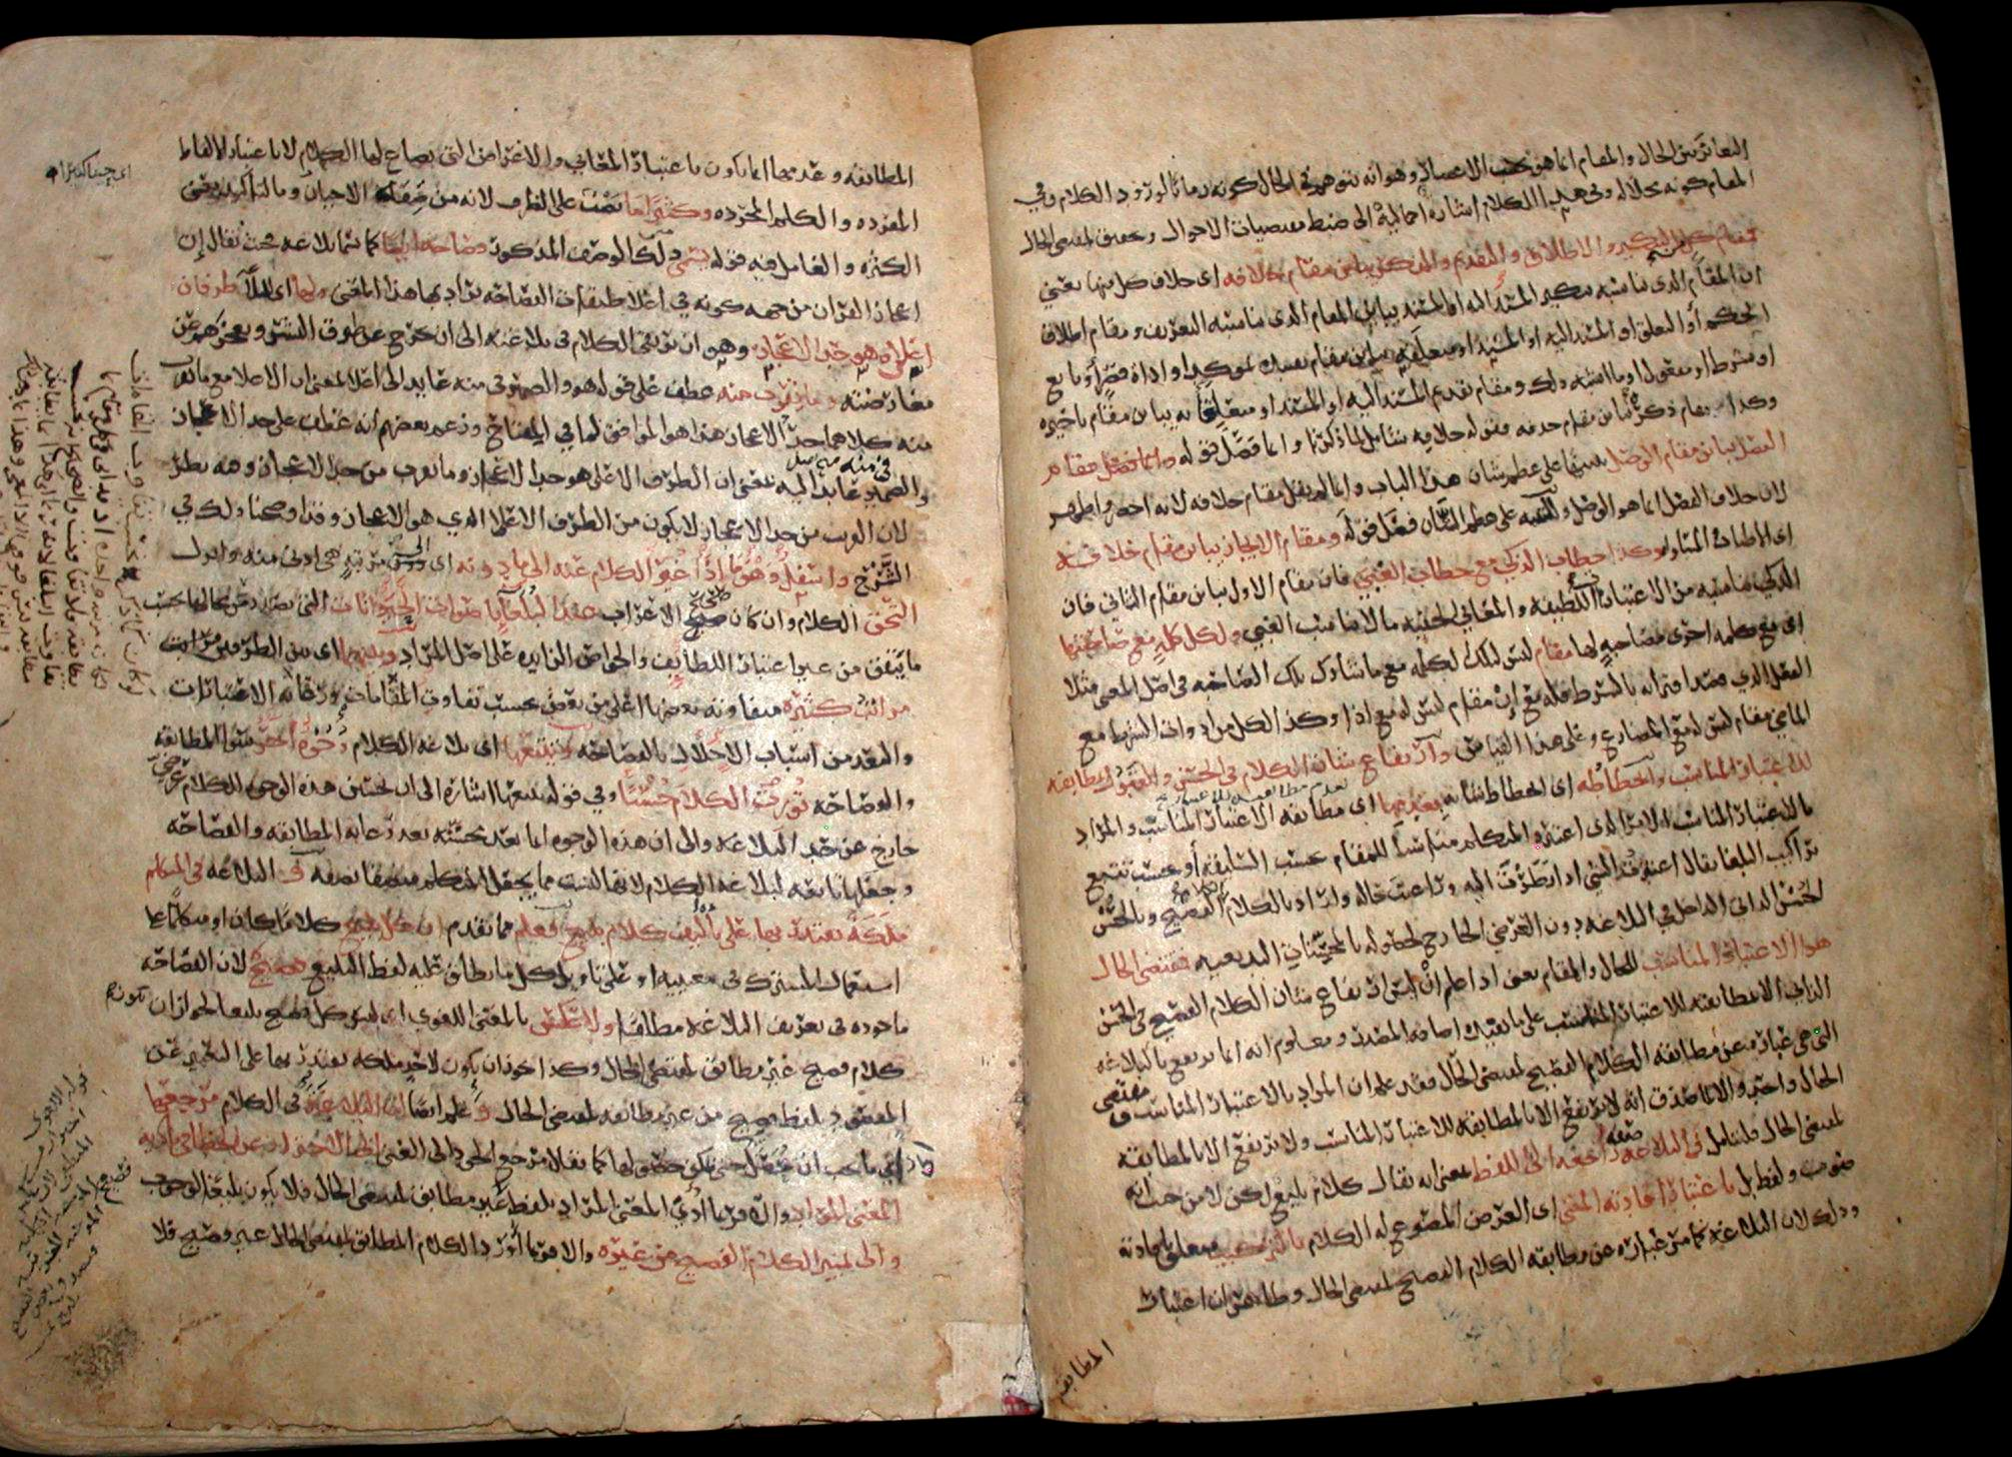 التغاير بين الحال والمقام انما هو بحسب الاعتبار وهو انه يتوهم في الحال كونه زمانا لورود الكلام وفي
المقام كونه محلا له وفي هذا الكلام اشارة اجمالية الى ضبط مقتضيات الاحوال وتحقيق لمقتضى الحال
فمقام كل من التنكير والاطلاق والتقديم والذكر يباين مقام خلافه اى خلاف كل منها يعني
ان المقام الذى يناسبه تنكير المسند اليه او المسند يباين المقام الذى يناسبه التعريف ومقام اطلاق
الحكم أو التعلق او المسند اليه او المسند او متعلقه يباين مقام تقييده بموكد او اداة قصر أو تابع
او شرط او مفعول او ما اشبه ذلك ومقام تقديم المسند اليه او المسند او متعلقاته يباين مقام تاخيره
وكذا مقام ذكره يباين مقام حذفه فقوله خلافه شامل لما ذكرنا وانما فصل قوله ومقام
الفصل يباين مقام الوصل تنبيها على عظم شان هذا الباب وانما لم يقل مقام خلافه لانه اخصر واظهر
لان خلاف الفصل انما هو الوصل وللتنبيه على عظم الشان فصل قوله ومقام الايجاز يباين مقام خلافه
اى الاطناب والمساواه وكذا خطاب الذكي مع خطاب الغبي فان مقام الاول يباين مقام الثاني فان
الذكي يناسبه من الاعتبارات اللطيفه والمعاني الخفيه ما لا يناسب الغبي ولكل كلمه مع صاحبتها
اى مع كلمه اخرى مصاحبة لها مقام ليس لتلك لكلمه مع ما يشارك تلك الصاحبه في اصل المعنى مثلا
الفعل الذي قصد اقترانه بالشرط فله مع إن مقام ليس له مع اذا وكذا لكل من ادوات الشرط مع
الماضي مقام ليس له مع المضارع وعلى هذا القياس وارتفاع شان الكلام في الحسن والقبول بمطابقته
للاعتبار المناسب وانحطاطه اى انحطاط شانه بعدمها اى مطابقه الاعتبار المناسب والمراد
بالاعتبار المناسب الامر الذى اعتبره المتكلم مناسبا للمقام بحسب السليقه أو بحسب تتبع
تراكيب البلغا يقال اعتبرت الشي اذا نظرت اليه وراعيت حاله واراد بالكلام الكلام الفصيح وبالحسن
الحسن الذاتي الداخل في البلاغه دون العرضي الخارج لحصوله بالمحسنات البديعيه فمقتضى الحال
هو الاعتبار المناسب للحال والمقام يعني اذا علم ان ليس ارتفاع شان الكلام الفصيح في الحسن
الذاتي الا بمطابقته للاعتبار المناسب على ما يفيده اضافه المصدر ومعلوم انه انما يرتفع بالبلاغه
التي هي عبارة عن مطابقه الكلام الفصيح لمقتضى الحال فقد علم ان المراد بالاعتبار المناسب ومقتضى
الحال واحد والا لما صدق انه لا يرتفع الا بالمطابقه للاعتبار المناسب ولا يرتفع الا بالمطابقه
لمقتضى الحال فليتامل فالبلاغه صفه راجعه الى اللفظ بمعنى انه يقال كلام بليغ لكن لا من حيث انه
صوت ولفظ بل باعتبار افادته المعنى اى الغرض المصوغ له الكلام بالتركيب متعلق بافادته
وذلك لان البلاغه كما مر عبارة عن مطابقه الكلام الفصيح لمقتضى الحال وظاهر ان اعتبار
المطابقه
المطابقه وعدمها انما يكون باعتبار المعاني والاغراض التي يصاغ لها الكلام لا باعتبار الالفاظ
المفرده والكلم المجرده وكثيرا ما نصب على الظرف لانه من صفه الاحيان وما لتاكيد معنى
الكثرة والعامل فيه قوله يسمى ذلك الوصف المذكور فصاحه ايضا كما يسمى بلاغه فحيث يقال إن
اعجاز القران من جهه كونه في اعلا طبقات الفصاحه يراد بها هذا المعنى ولها اى للبلاغه طرفان
اعلاه وهو حد الاعجاز وهو ان يرتقي الكلام في بلاغته الى ان يخرج عن طوق البشر ويعجزهم عن
معارضته وما يقرب منه عطف على قوله هو والضمير في منه عايد الى اعلا يعني ان الاعلا مع ما يقرب
منه كلاهما حد الاعجاز هذا هو الموافق لما في المفتاح وزعم بعضهم انه عطف على حد الاعجاز
والضمير في منه عايد اليه يعني ان الطرف الاعلى هو حد الاعجاز وما يقرب من حد الاعجاز وفيه نظر
لان القريب من حد الاعجاز لا يكون من الطرف الاعلا الذي هو الاعجاز وقد اوضحنا ذلك في
الشرح واسفل وهو ما إذا غير الكلام عنه الى ما دونه اى الى مرتبة هي ادنى منه وانزل
التحق الكلام وان كان صحيح الاعراب عند البلغا باصوات الحيوانات التي تصدر عن محالها بحسب
ما يتفق من غير اعتبار اللطايف والخواص الزايده على اصل المراد وبينهما اى بين الطرفين مراتب
مراتب كثيره متفاوته بعضها اعلى من بعض بحسب تفاوت المقامات ورعايه الاعتبارات
والبعد من اسباب الاخلال بالفصاحه وتتبعها اى بلاغه الكلام وجوه اخر سوى المطابقه
والفصاحه تورث الكلام حسنا وفي قوله تتبعها اشارة الى ان تحسين هذه الوجوه للكلام عرضي
خارج عن حد البلاغه والى ان هذه الوجوه انما تعد محسنه بعد رعايه المطابقه والفصاحه
وجعلها تابعه لبلاغه الكلام لانها ليست مما يجعل المتكلم متصفا بصفه والبلاغه في المتكلم
ملكة يقتدر بها على تاليف كلام بليغ فعلم مما تقدم ان كل بليغ كلاما كان او متكلما على
استعمال المشترك في معنييه او على تاويل كل ما يطلق عليه لفظ البليغ فصيح لان الفصاحه
ماخوذه في تعريف البلاغه مطلقا ولا عكس بالمعنى اللغوى اى ليس كل فصيح بليغا لجواز ان يكون
كلام فصيح غير مطابق لمقتضى الحال وكذا يجوز ان يكون لاحد ملكه يقتدر بها على التعبير عن
المقصود بلفظ فصيح من غير مطابقه لمقتضى الحال وعلم ايضا ان البلاغه في الكلام مرجعها
اى ما يجب ان يحصل حتى يمكن حصولها كما يقال مرجع الجود الى الغنى الى الاحتراز عن الخطا في تاديه
المعنى المراد والا لربما ادى المعنى المراد بلفظ غير مطابق لمقتضى الحال فلا يكون بليغا لوجوب
والى تمييز الكلام الفصيح من غيره والا لربما أورد الكلام المطابق لمقتضى الحال غير فصيح فلا